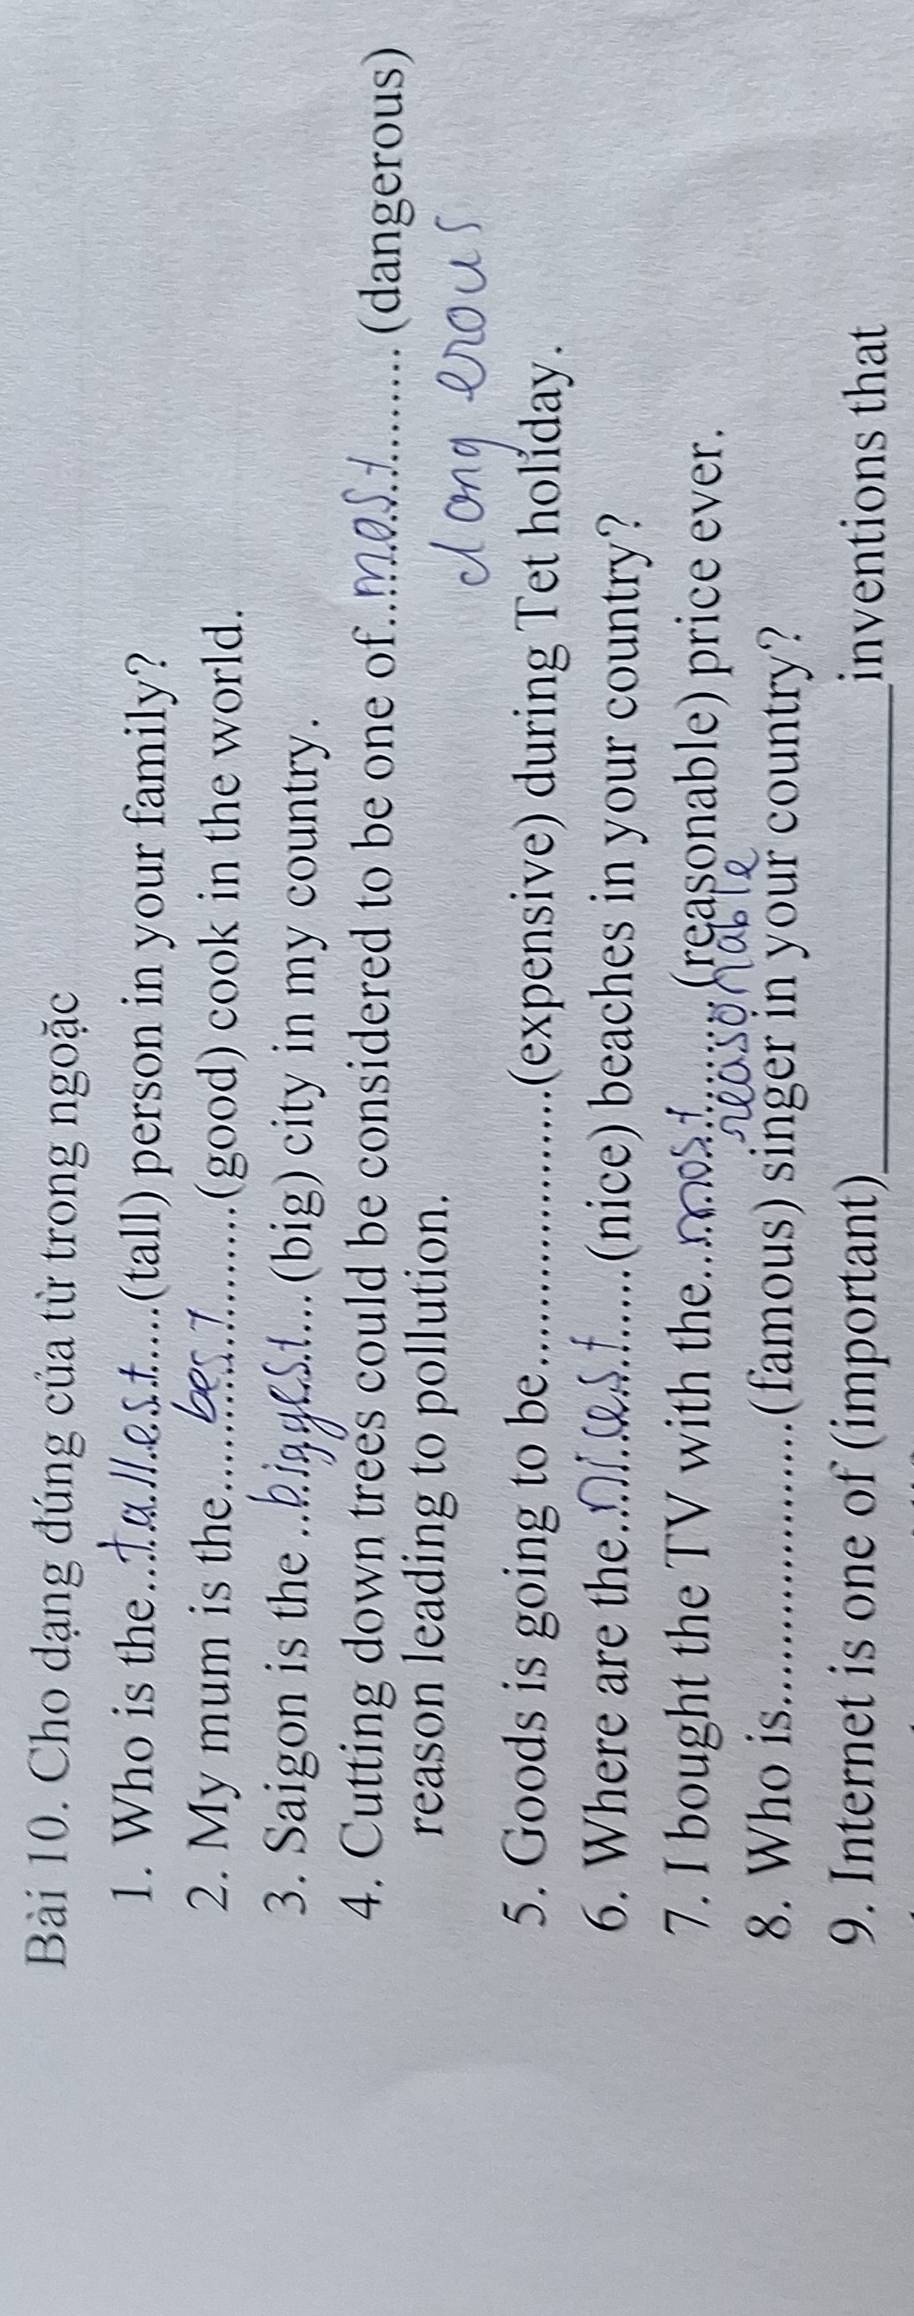 Bài 10. Cho dạng đúng của từ trong ngoặc
1. Who is the...tallest.....(tall) person in your family?
2. My mum is the......best.......(good) cook in the world.
3. Saigon is the ...biggest....(big) city in my country.
4. Cutting down trees could be considered to be one of...most........ (dangerous)
dangerous
reason leading to pollution.
5. Goods is going to be........................(expensive) during Tet holiday.
6. Where are the...nicest......(nice) beaches in your country?
7. I bought the TV with the...most.......(reasonable) price ever.
reasonable
8. Who is........................(famous) singer in your country?
9. Internet is one of (important)____________________inventions that